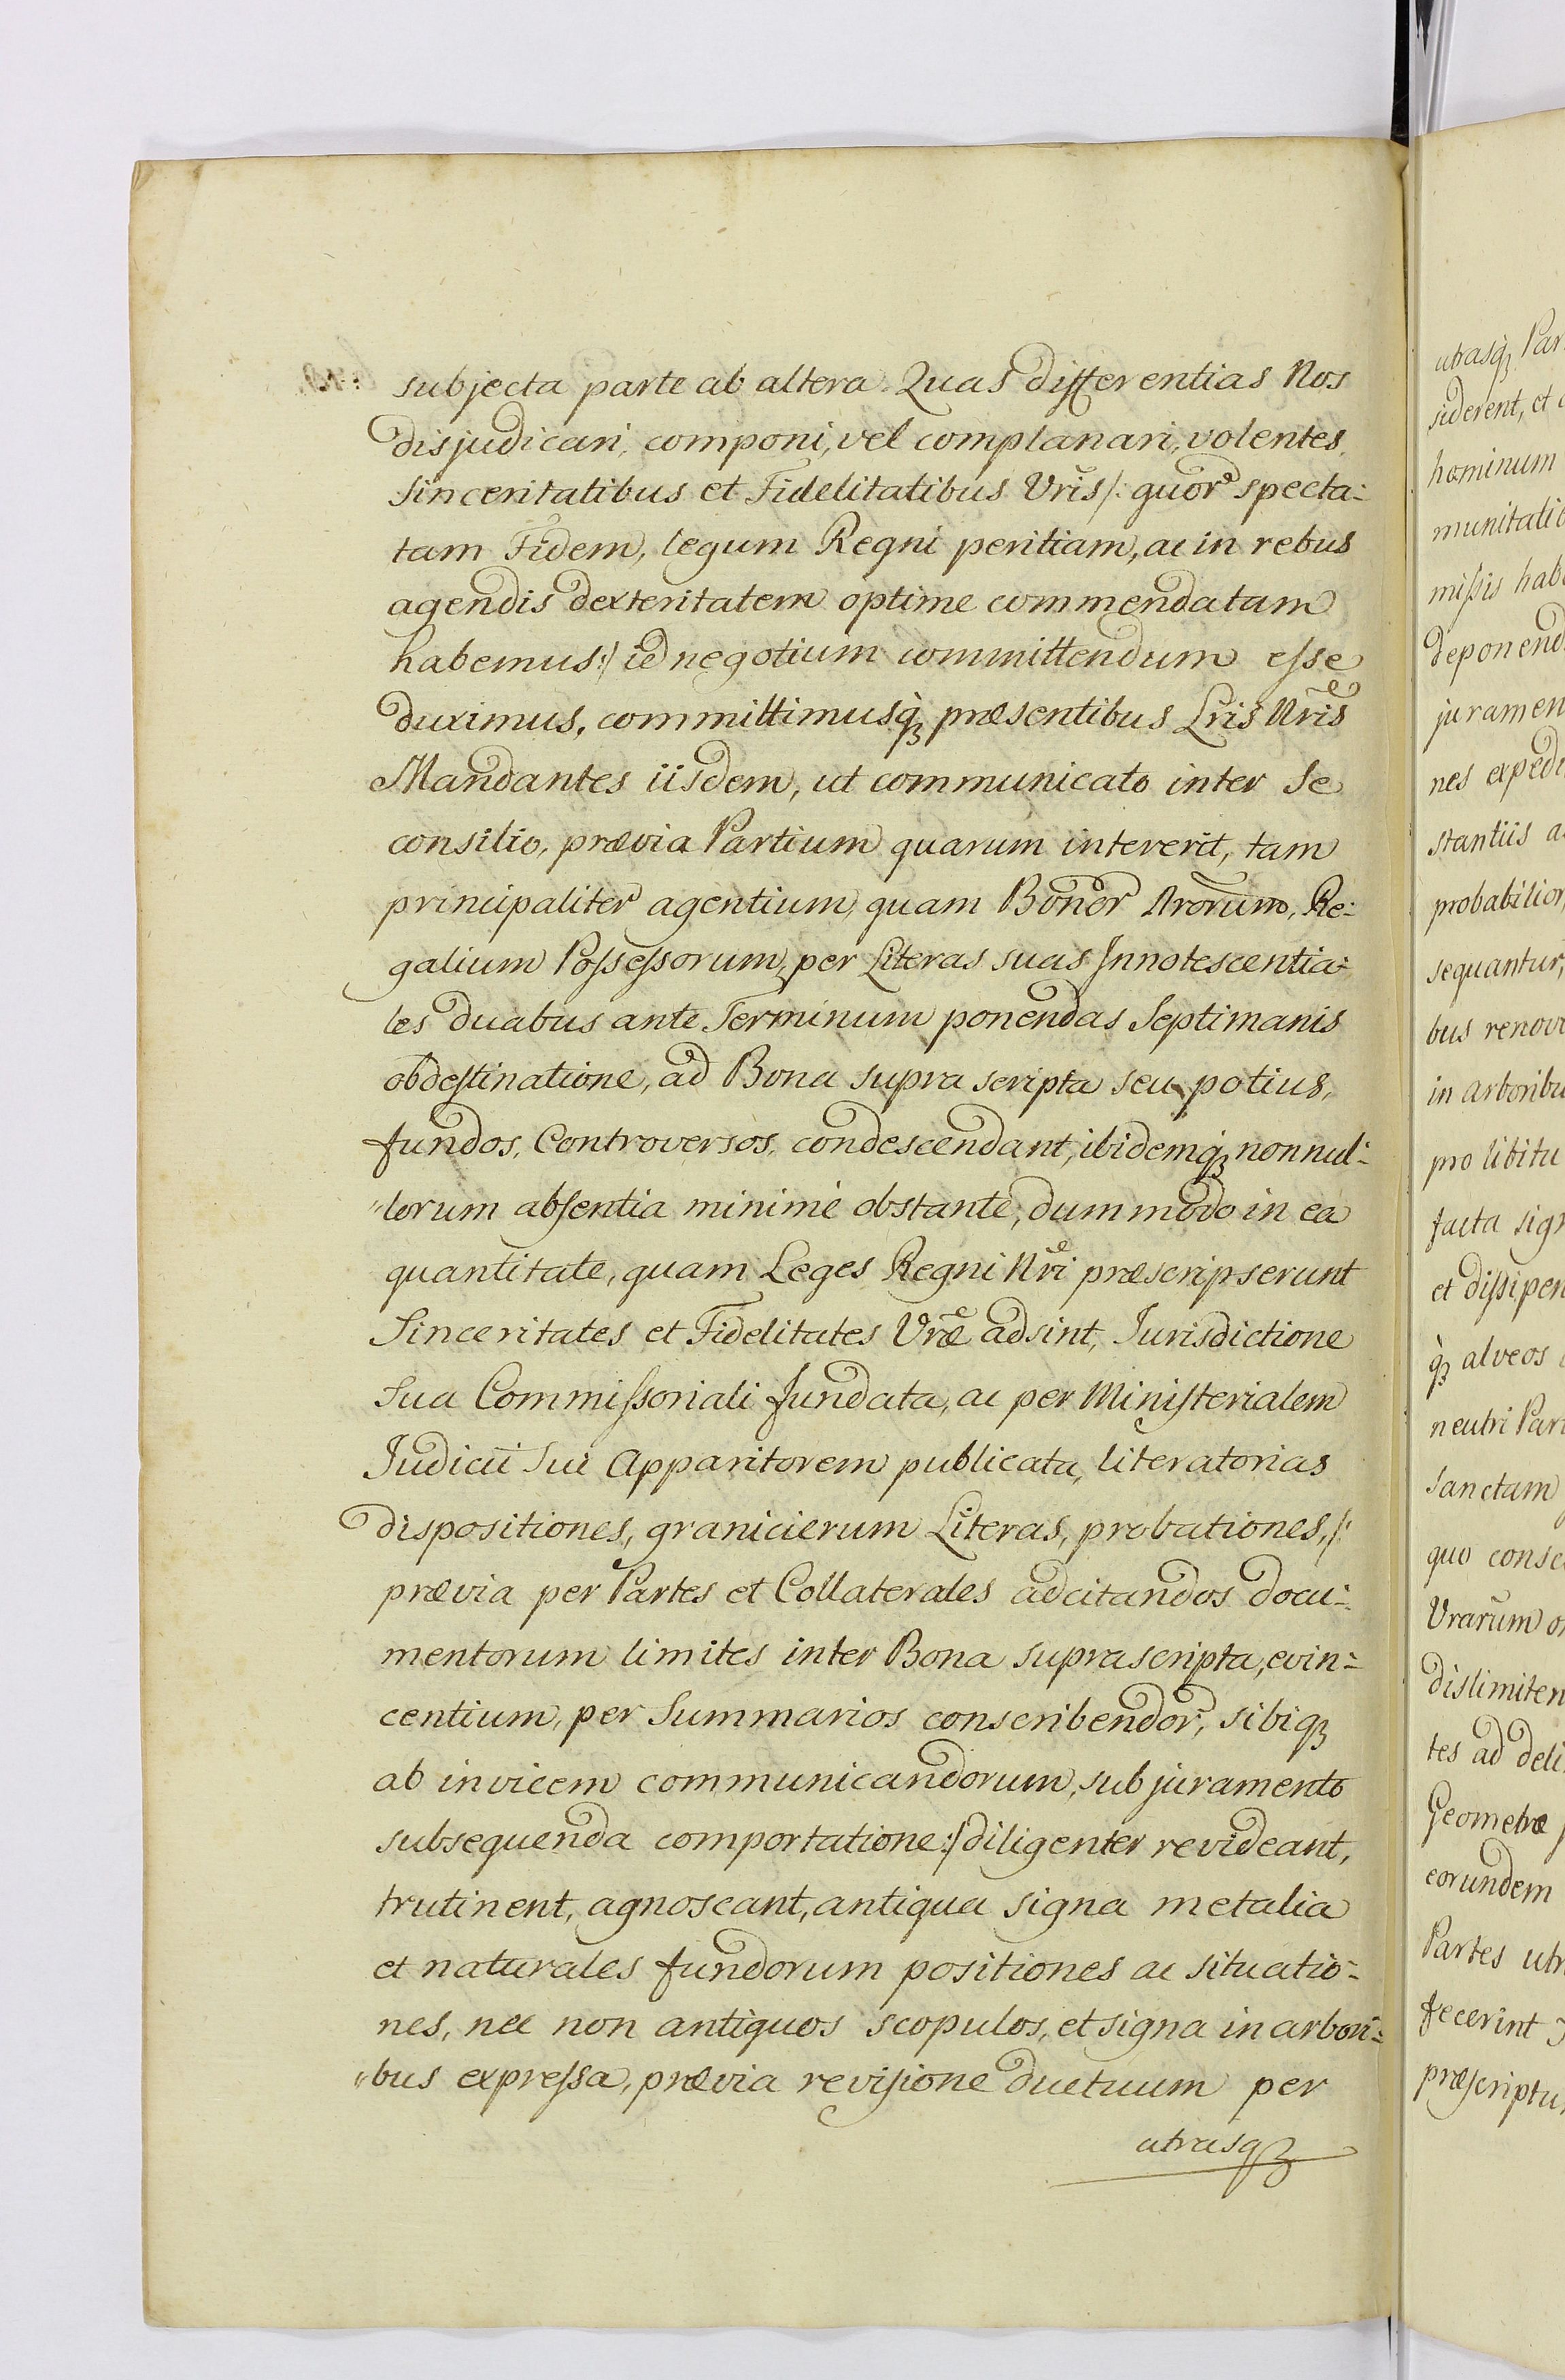 subjecta parte ab altera. Quas differentias Nos
disjudicari, componi, vel complanari, volentes,
Sinceritatibus et Fidelitatibus Vris /: quor specta-
tam Fidem, legum Regni peritiam, ac in rebus
agendis dexteritatem optime commendatam
habemus :/ id negotium committendum esse
duximus, committimusq; præsentibus Lris Nris
Mandantes iisdem, ut communicato inter Se
consilio, prævia Partium quarum intererit, tam
principaliter agentium, quam Bonor Nrorum, Re-
galium Possessorum, per Literas suas Innotescentia-
les duabus ante Terminum ponendas Septimanis
obdestinatione, ad Bona supra scripta seu potius,
fundos, Controversos, condescendant, ibidemq; nonnul-
lorum absentia minimè obstante, dummodo in ea
quantitate, quam Leges Regni Nri præscripserunt
Sinceritates et Fidelitates Vræ adsint, Jurisdictione
Sua Commissoriali fundata, ac per Ministerialem
Judicii Sui Apparitorem publicata, literatorias
dispositiones, granicierum Literas, probationes, /:
prævia per Partes et Collaterales adcitandos docu-
mentorum limites inter Bona suprascripta, evin-
centium, per Summarios conscribendor, sibiq;
ab invicem communicandorum, sub juramento
subsequenda comportatione :/ diligenter revideant,
trutinent, agnoscant, antiqua signa metalia
et naturales fundorum positiones ac situatio-
nes, nec non antiquos scopulos, et signa in arbori-
bus expressa, prævia revisione ductuum per
utrasq;
utrasq; Par
siderent, et
hominum
munitatio
missis hab
deponend
juramen
nes expedi
stantiis a
probabilior
sequantur,
bus renov
in arboribu
pro libitu
facta sig
et dissipen
q; alveos
neutri Par
sanctam
quo conse
Vrarum o
dislimiten
tes ad deli
Geometræ
eorundem
Partes utr
fecerint
præscriptu